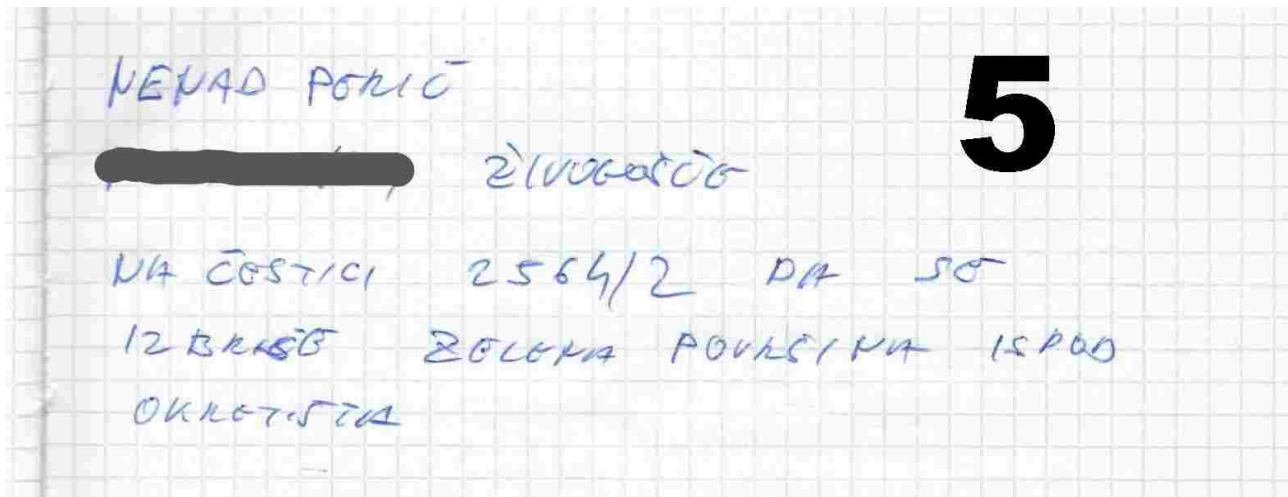 NENAD PERIĆ
5
ŽIVOGOŠĆE
NA ČESTICI 2564/2 DA SE
IZBRIŠE ZELENA POVRŠINA ISPOD
OKRETIŠTA